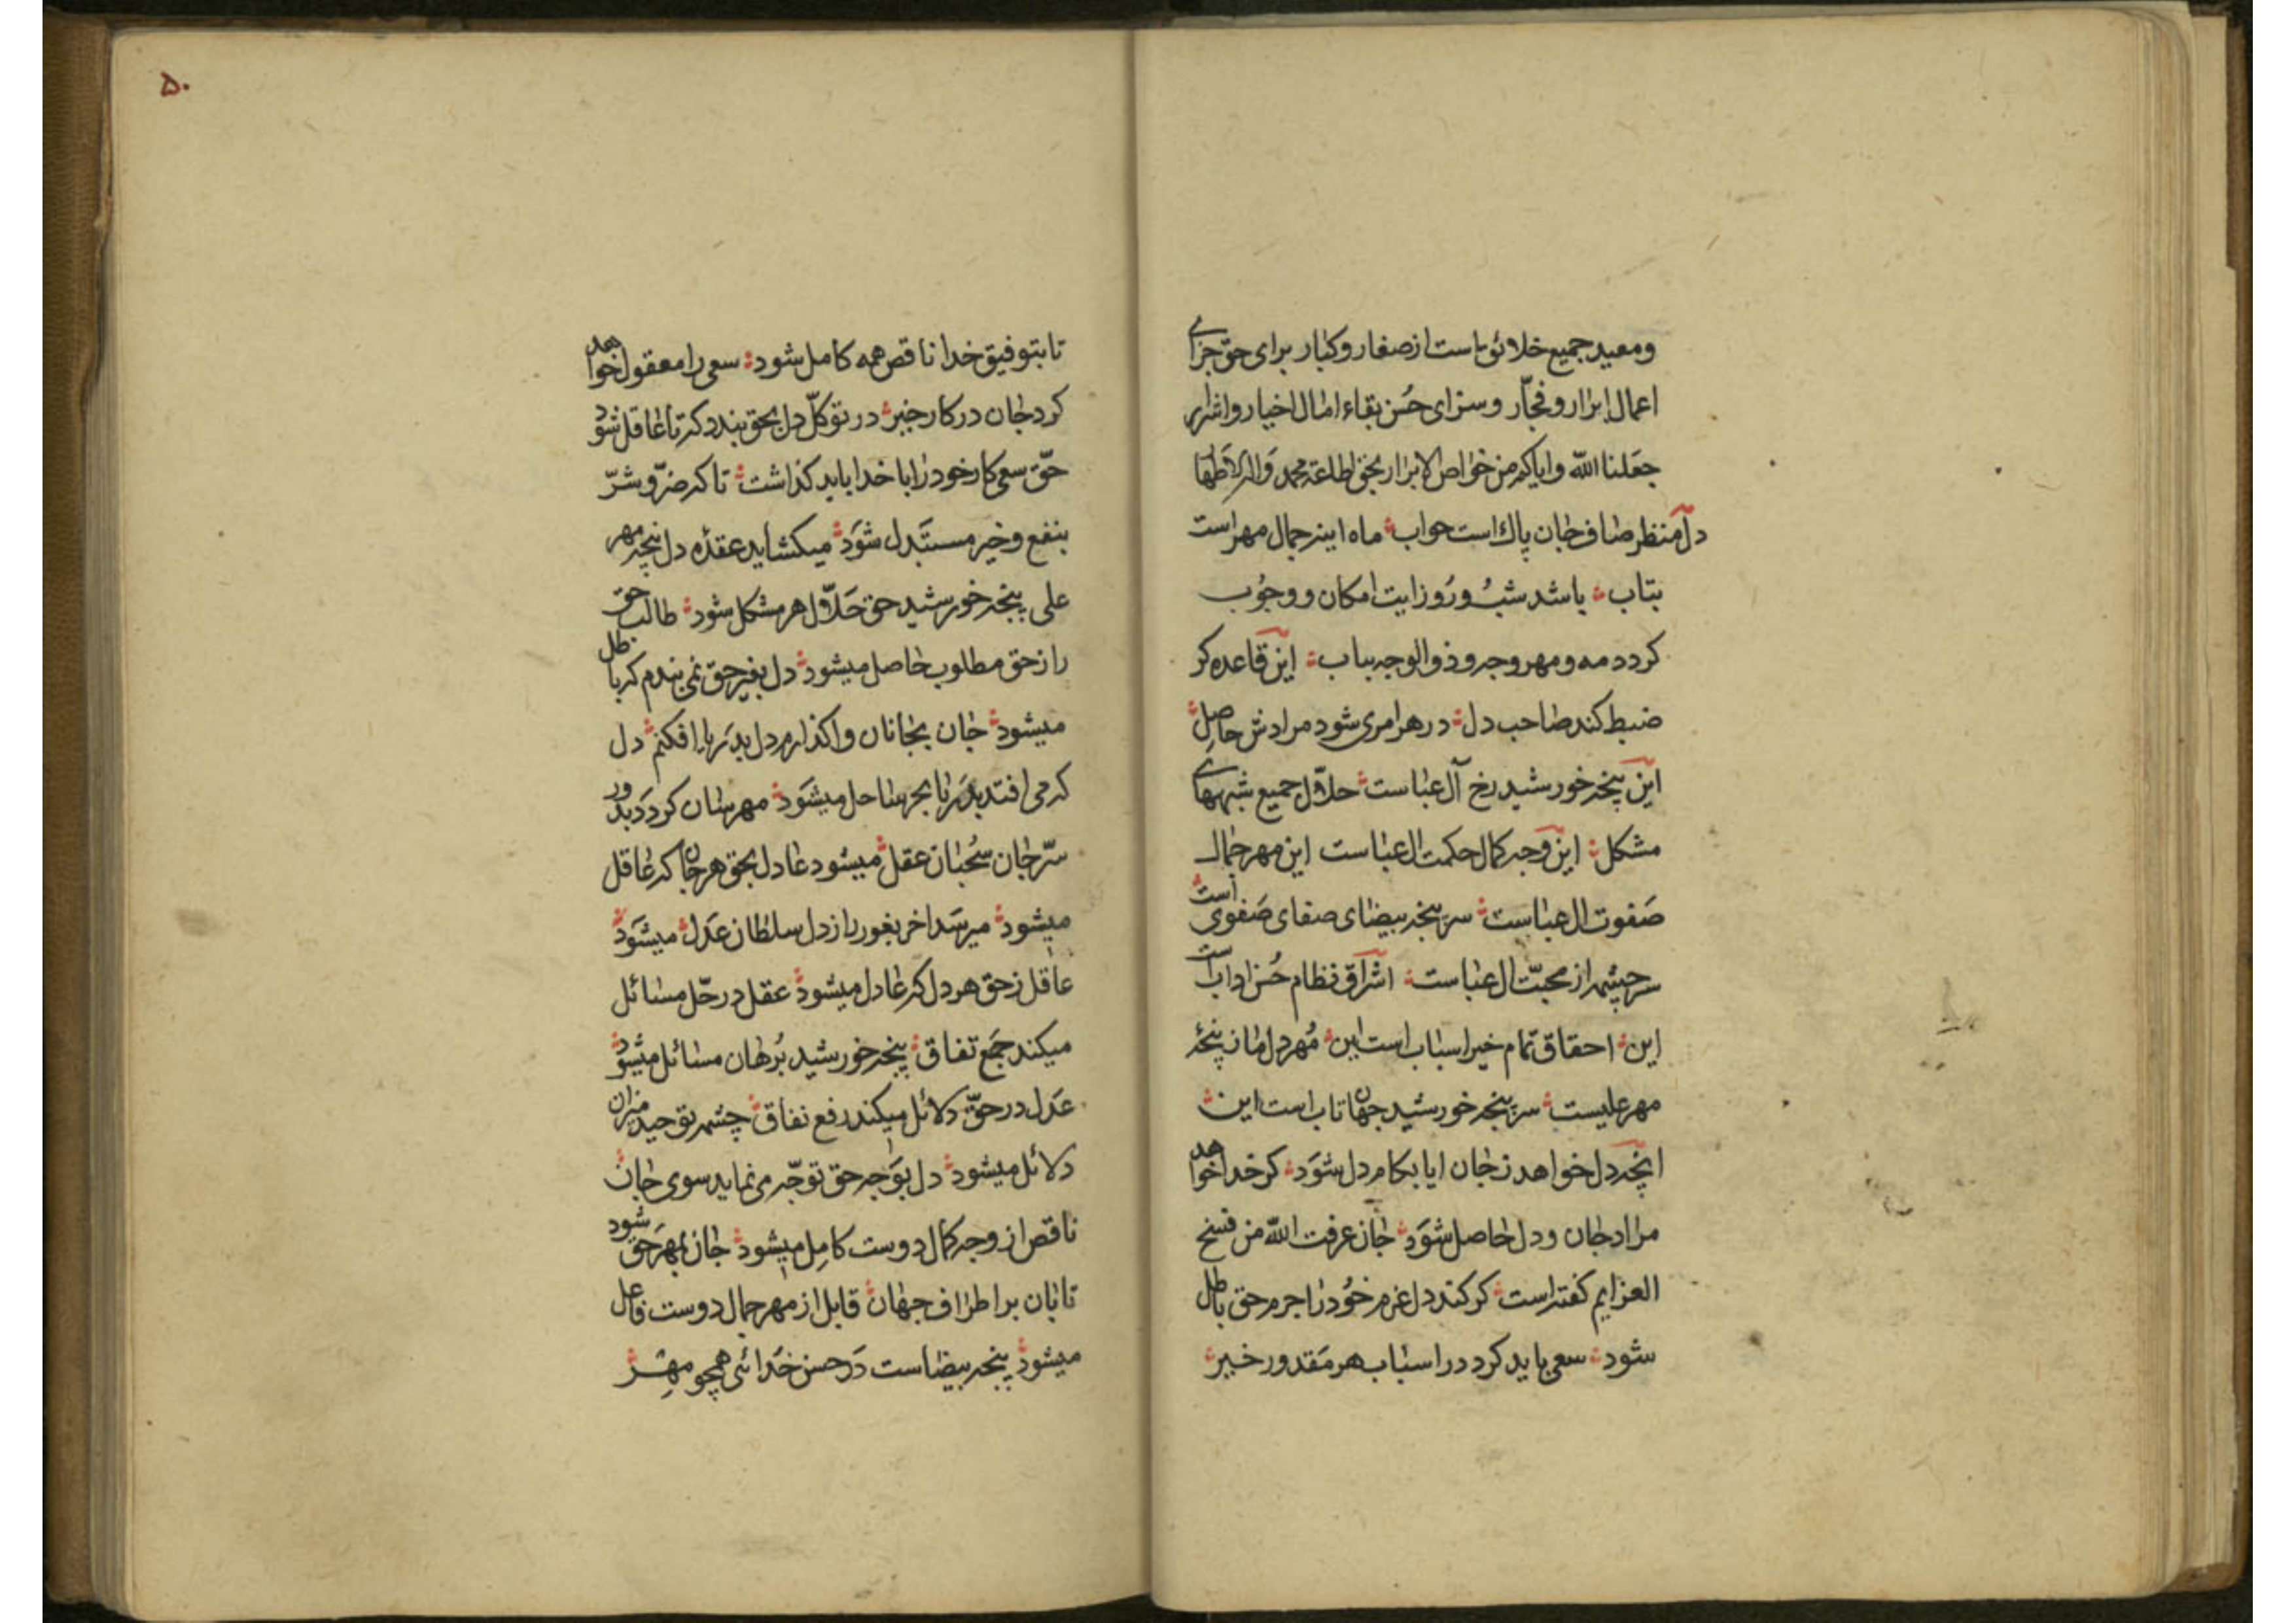 ومعید جمیع خلائق است از صغار و کبار برای حق جزای
اعمال ابرار و فجّار و سزای حُسن بقاء امال اخیار و اشرار
جعَلنا اللّه وایاکم من خواص الابرار بحق لطلعة محمد وَاله الاَطهار
دل منظر صاف جان پاک است جواب ماه اینه جمال مهر است
بتاب باشد شبُ و رُوز ایت امکان و وجُوب
کردد مه و مهر وجه و ذو الوجه بیاب این قاعده کر
ضبط کند صاحب دل در هر امری شود مرادش حاصِل
این پنجه خورشید رخ آل عباست حلّال جمیع شبههای
مشکل این وجه کمال حکمت ال عباست این مهر جمال
صَفوت ال عباست سر پنجه بیضای صفای صَفوی است
سرچشمه از محبّت ال عباست اشراق نظام حُسن اداب است
این احقاق تمام خیر اسباب است این مُهر دل امان پنجهٔ
مهر علیست سر پنجه خورشید جهان تاب است این
انچه دل خواهد ز جان ایا بکام دل شوَد کر خدا خواهد
مراد جان و دل حاصل شوَد جان عرفت اللّه من فسخ
العزایم کفته است کر کند دل عزم خوُد را جرم حق باطل
شود سعی باید کرد در اسباب هر مَقدور خیر
۵۰
تا بتوفیق خدا ناقص همه کامل شود سعی را معقول خواهد
کرد جان در کار خیر در توکّل دل بحق بندد کر تا عاقل شود
حقّ سعی کار خود را با خدا باید کذاشت تا که ضرّ و شرّ
بنفع و خیر مستَبدل شوَد میکشاید عقدهٔ دل پنجه مهر
علی پنجه خورشید حق حَلّال هر مشکل شود طالب حق
را ز حق مطلوب حاصل میشود دل بغیر حق نمی بندم که باطل
میشود جان بجانان واکذارم دل بدَریا افکنم دل
که می افتد بدَریا بحر ساحل میشوَد مهر سان کردَد بدور
سرّ جان سُبحان عقل میشود عادل بحق هر جان که عاقل
میشود میرسَد اخر بغور راز دل سلطان عَدل میشوَد
عاقل ز حق هر دل که عادل میشود عقل در حلّ مسائل
میکند جمَع تفاق پنجه خورشید بُرهان مسائل میشود
عَدل در حقّ دلائل میکند رفع نفاق چشمه توحید میزان
دلائل میشود دل بوَجه حق توجّه می نماید سوی جان
ناقص از وجه کمال دوست کامِل میشود جان بمهر حق شود
تابان بر اطراف جهان قابل از مهر جمال دوست فاعل
میشود پنجه بیضاست دَر حسن خَدائی همچو مهر